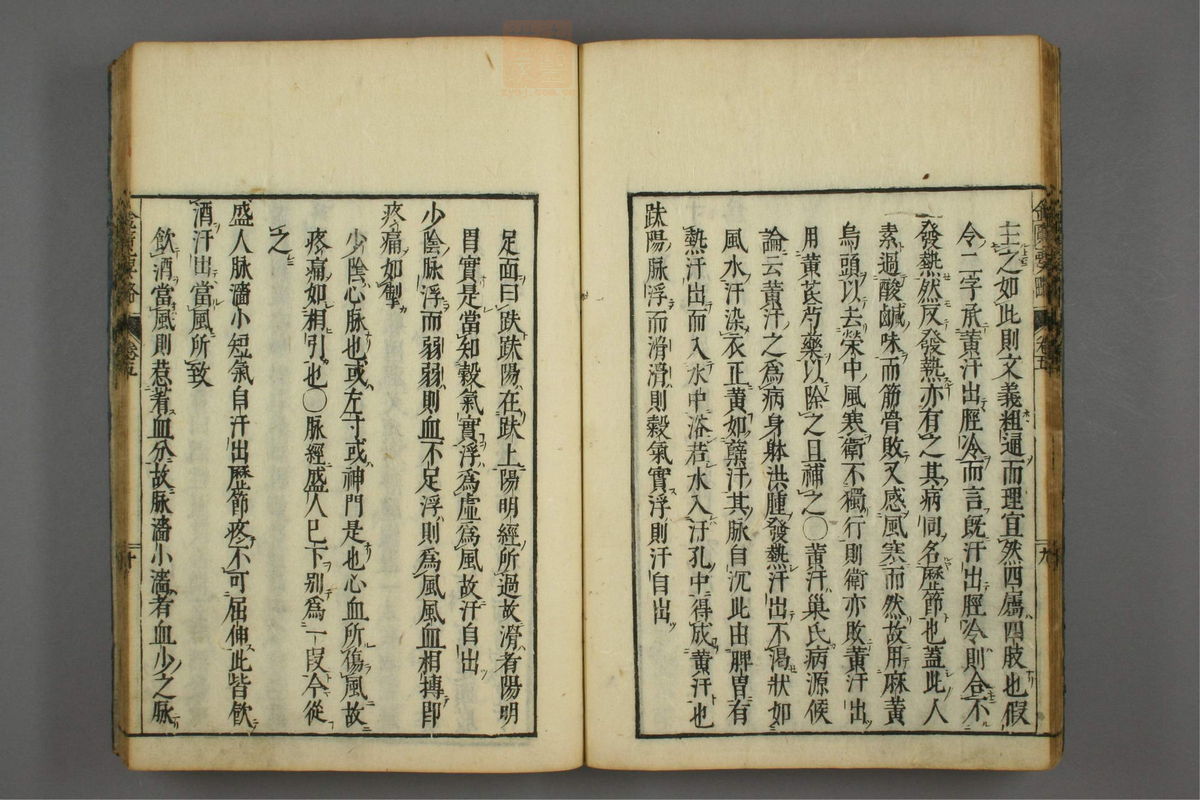 主之如此則文義粗通而理宜然四屬四肢也假
令二字承黃汗出脛冷而言既汗出脛冷則合不
發熱然反發熱亦有之其病同名歷節也蓋此人
素過酸鹹味而筋骨敗又感風寒而然故用麻黃
烏頭以去榮中風寒衛不獨行則衛亦敗黃汗出
用黃芪芍藥以除之且補之〇黃汗巢氏病源候
論云黃汗之爲病身躰洪腫發熱汗出不渴狀如
風水汗染衣正黃如蘗汁其脉自沉此由脾胃有
熱汗出而入水中浴若水入汗孔中得成黃汗也
趺陽脉浮而滑滑則穀氣實浮則汗自出
金匱要畧 卷五 九
足面曰趺趺陽在趺上陽明經所過故滑者陽明
胃實是當知穀氣實浮爲虛爲風故汗自出
少陰脉浮而弱弱則血不足浮則爲風風血相搏即
疼痛如掣
少陰心脉也或左寸或神門是也心血所傷風故
疼痛如相引也〇脉經盛人已下別爲一段今從
之
盛人脉濇小短氣自汗出歷節疼不可屈伸此皆飲
酒汗出當風所致
飲酒當風則惹著血分故脉濇小濇者血少之脉
卷五 十